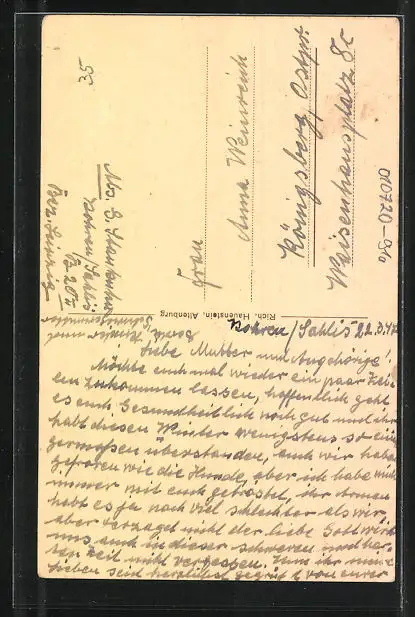 35
Frau
Anna Weinreich
Königsberg, Ostpr.
Waisenhausplatz 8c
010720-916
Abs. E.
Kohren Sahlis
Bez. Leipzig
Rich. Hauenstein, Altenburg
Kohren / Sahlis 22.3.47
Liebe Mutter und Angehörige!
Möchte euch mal wieder ein paar Zei-
len zukommen lassen, hoffentlich geht
es euch Gesundheitlich noch gut und ihr
habt diesen Winter wenigstens so eini
germaßen überstanden, auch wir haben
gefroren wie die Hunde, aber ich habe mich
immer mit euch getröstet, ihr Armen
habt es ja noch viel schlechter als wir,
aber verzaget nicht der liebe Gott wird
uns auch in dieser schweren und har-
ten Zeit nicht vergessen. Nun ihr meine
Lieben seid herzlichst gegrüßt von eurer
Schwiegermutter